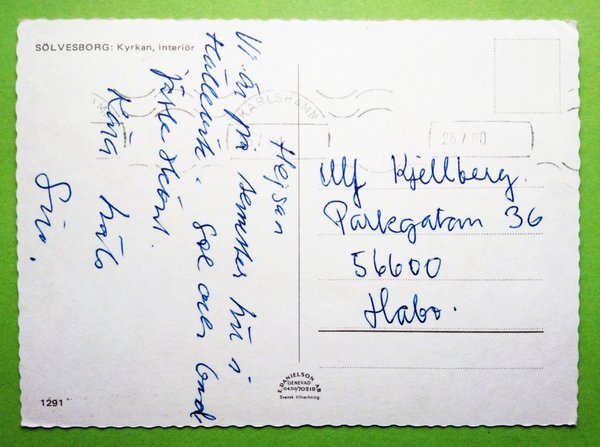 SÖLVESBORG: Kyrkan, interiör
KARLSHAMN
25.7.80
Hejsan
Vi är på semester här i
Hällevik. Sol över land
jätteskönt.
Kära häls
Siv.
Ulf Kjellberg.
Parkgatan 36
56600
Habo.
E. DANIELSON AB
GENEVAD
0430/70218
Svensk tillverkning.
1291